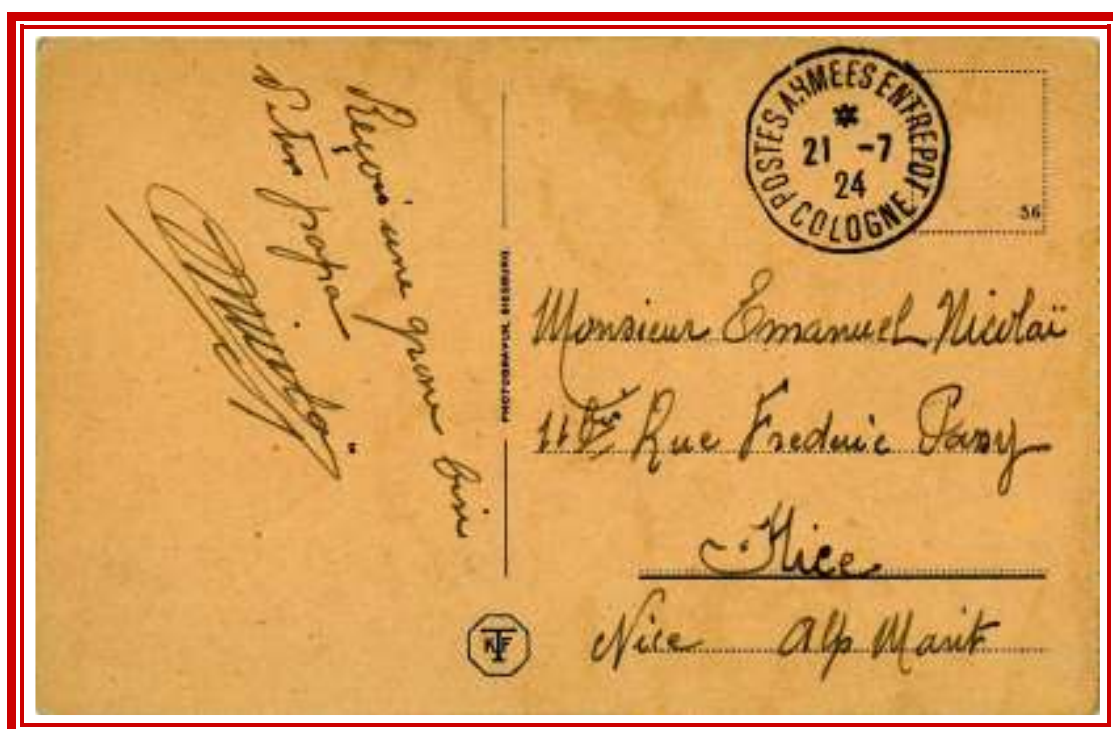 Reçois une grosse bise
de ton papa
Nicolaï
PHOTOGRAVUR, SIEGBURG.
POSTES ARMEES ENTREPOT
21 -7
24
COLOGNE
36
Monsieur Emanuel Nicolaï
11 Bis Rue Frederic Passy
Nice
Nice Alp Marit
KTF